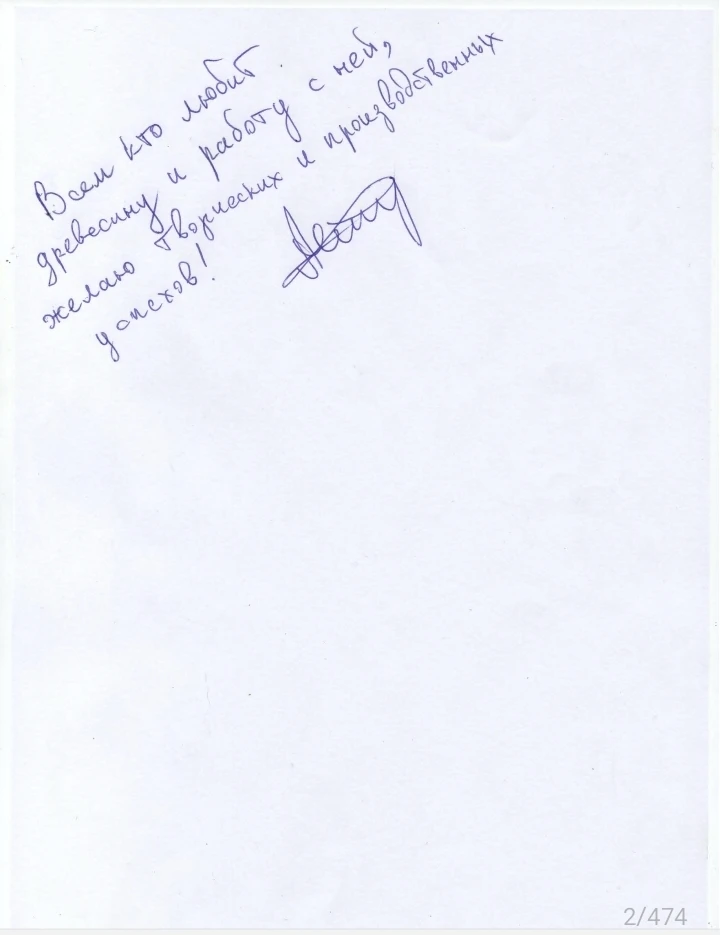 Всем кто любит
древесину и работу с ней,
желаю творческих и производственных
успехов!
2/474